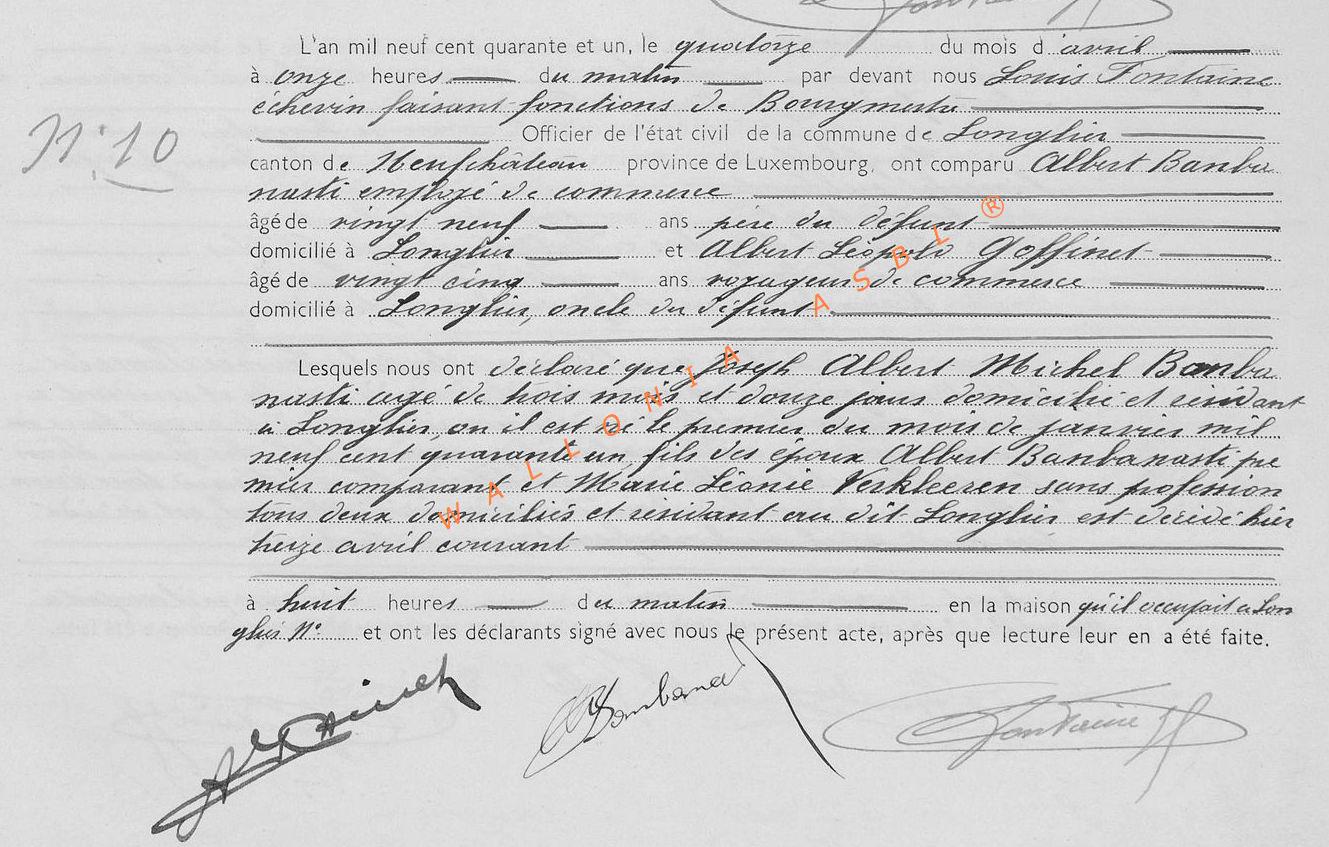 L'an mil neuf cent quarante et un, le quatorze du mois d'avril
à onze heures du matin par devant nous Louis Fontaine
échevin faisant fonctions de Bourgmestre
N: 10
Officier de l'état civil de la commune de Longlier
canton de Neufchâteau province de Luxembourg, ont comparu Albert Banba
nasti employé de commerce
âgé de vingt neuf ans père du défunt
domicilié à Longlier et Albert Léopold Goffinet
âgé de vingt cinq ans voyageur de commerce
domicilié à Longlier, oncle du défunt
Lesquels nous ont déclaré que Joseph Albert Michel Banba
nasti agé de trois mois et douze jours domicilié et résidant
à Longlier, où il est né le premier du mois de janvier mil
neuf cent quarante un, fils des époux Albert Banbanasti pre
mier comparant et Marie Léonie Verkleeren sans profession
tous deux domiciliés et résidant au dit Longlier est décédé hier
treize avril courant
à huit heures du matin en la maison qu'il occupait à Lon
glier N° et ont les déclarants signé avec nous le présent acte, après que lecture leur en a été faite.
Fontaine
WALLONIA ASBL ®